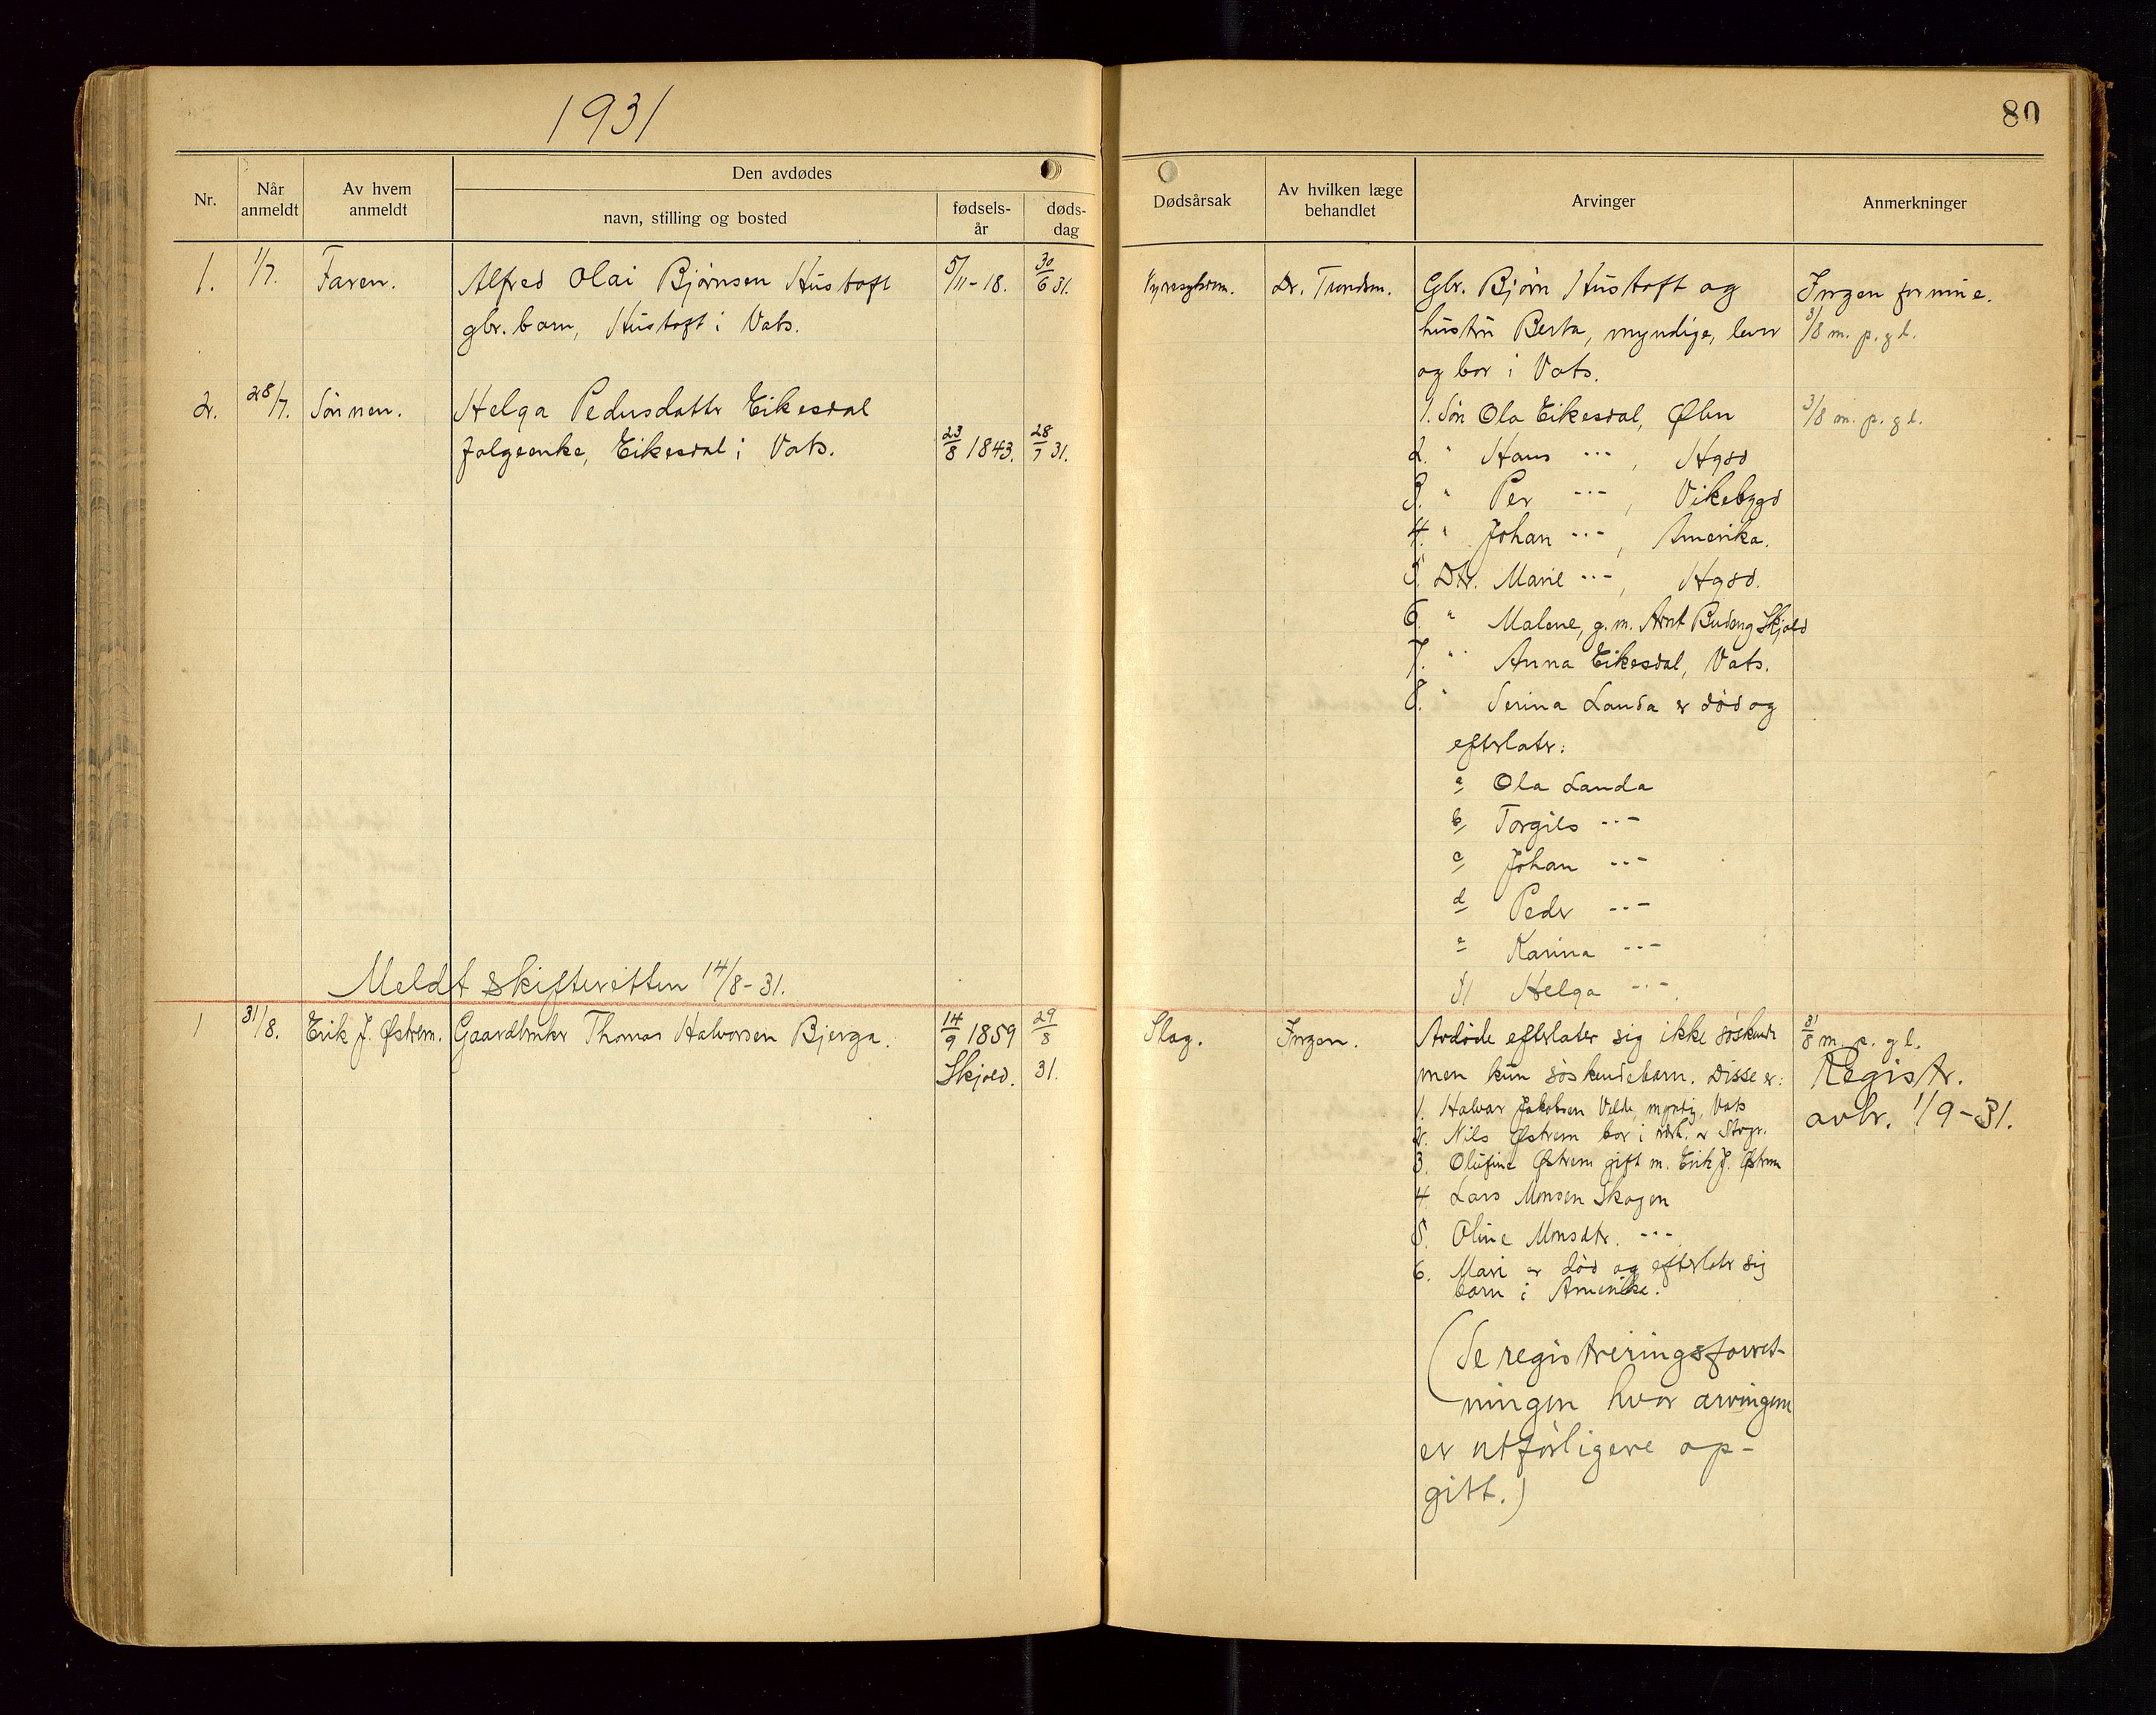 1931
80
Nr.
Når anmeldt
Av hvem anmeldt
Den avdødes
navn, stilling og bosted
fødsels-år
døds-dag
Dødsårsak
Av hvilken læge behandlet
Arvinger
Anmerkninger
1. 1/7. Faren. Alfred Olai Bjørnsen Hustoft 5/11-18. 30/6 31.
gbr. barn, Hustoft i Vats.
Dr. Trondsen. Gbr. Bjørn Hustoft og
hustru Berta, myndige, lever
og bor i Vats.
Ingen formue.
3/8 m. p. g l.
2. 28/7. Sønnen. Helga Pedersdatter Eikesdal
folgeenke, Eikesdal i Vats. 23/8 1843. 28/7 31.
1. Søn Ola Eikesdal, Ølen
2. " Hans -"-, Hgsd
3. " Per -"-, Vikebygd
4. " Johan -"-, Amerika.
5. Dtr. Marie -"-, Hgsd.
6. " Malene, g.m. Arnt Skjold
7. " Anna Eikesdal, Vats.
8. " Serina Landa er død og
efterlater:
a Ola Landa
b Torgils -"-
c Johan -"-
d Peder -"-
e Karina -"-
f) Helga -"-.
3/8 m. p. g l.
Meldt skifteretten 14/8-31.
1 31/8. Erik J. Østrem. Gaardbruker Thomas Halvorsen Bjerga. 14/9 1859 29/8
Skjold. 31.
Slag. Ingen. Avdøde efterlater sig ikke søskende
men kun søskendebarn. Disse er:
1. Halvar Jakobsen Velde, myndig, Vats
2. Nils Østrem bor i
3. Olufine Østrem gift m. Erik J. Østrem
4. Lars Monsen Skogen
5. Oline Monsdtr. -"-.
6. Mari er død og efterlater sig
barn i Amerika.
(Se registreringsforret-
ningen hvor arvingene
er utførligere op-
gitt.)
31/8 m. p. g l.
Registr.
avh. 1/9-31.